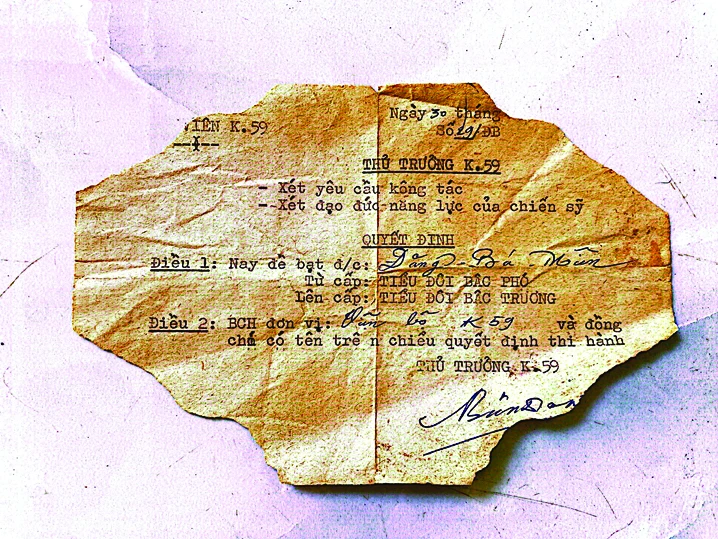 VIÊN K.59
Ngày 30 tháng
--I--
Số 29/ĐB
THỦ TRƯỞNG K.59
- Xét yêu cầu kông tác
- Xét đạo đức năng lực của chiến sỹ
QUYẾT ĐỊNH
Điều 1: Nay đề bạt đ/c: Đặng Bá Mẫn
Từ cấp: TIỂU ĐỘI BẬC PHÓ
Lên cấp: TIỂU ĐỘI BẬC TRƯỞNG
Điều 2: BCH đơn vị: bộ K59 và đồng
chí có tên trê n chiếu quyết định thi hành
THỦ TRƯỞNG K.59